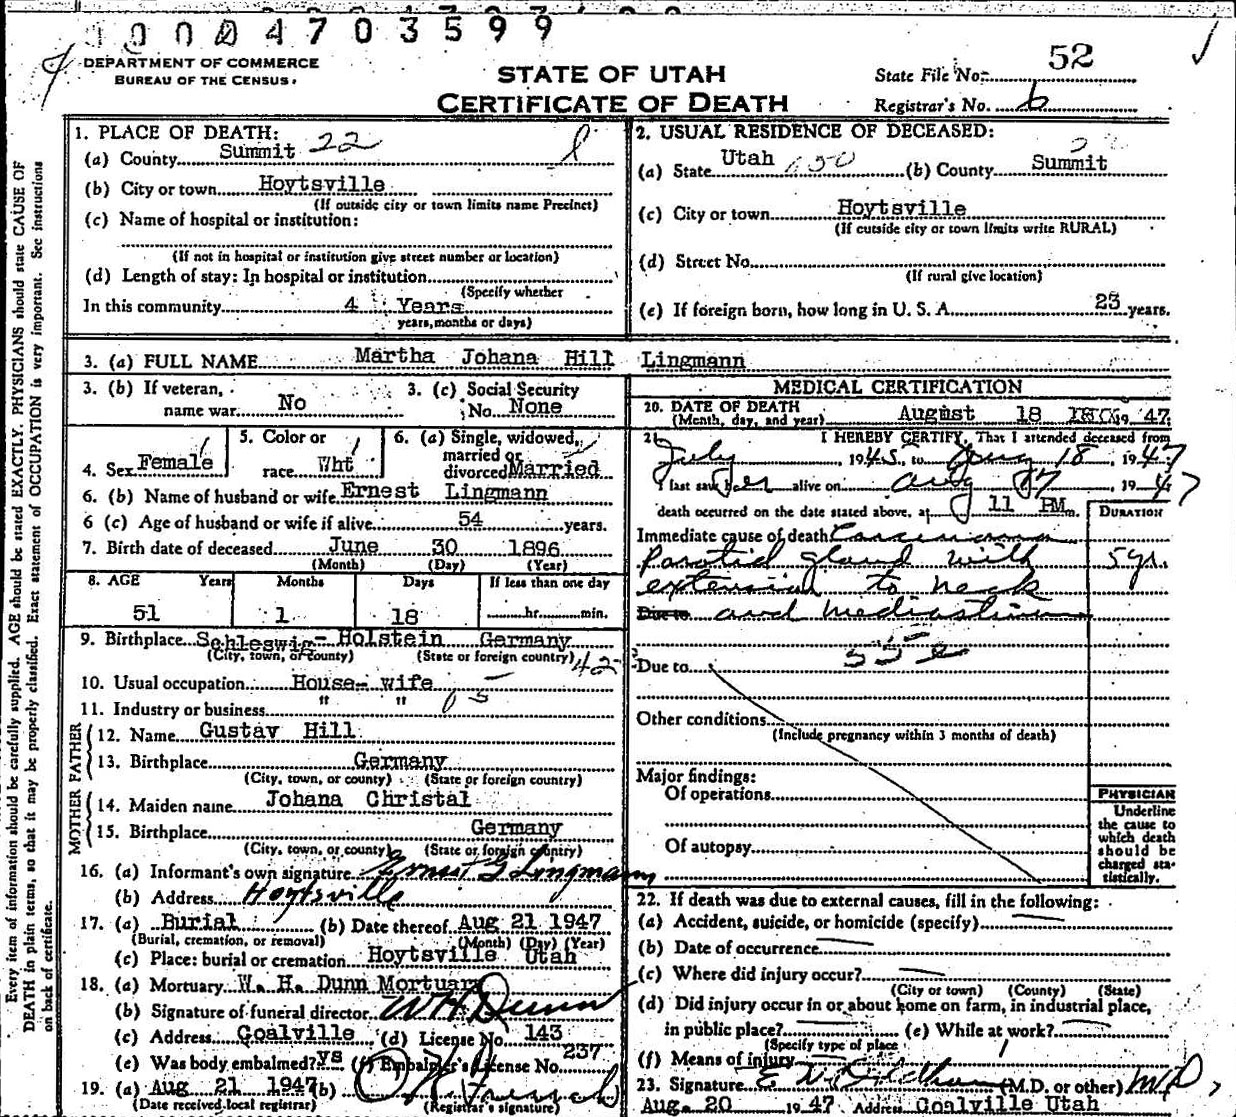 0004703599
DEPARTMENT OF COMMERCE
BUREAU OF THE CENSUS.
STATE OF UTAH
CERTIFICATE OF DEATH
State File No. 52
Registrar's No. 6
Every item of information should be carefully supplied. AGE should be stated EXACTLY. PHYSICIANS should state CAUSE OF
DEATH in plain terms, so that it may be properly classified. Exact statement of OCCUPATION is very important. See instructions
on back of certificate.
1. PLACE OF DEATH:
(a) County Summit 22
(b) City or town Hoytsville
(If outside city or town limits name Precinct)
(c) Name of hospital or institution:
(If not in hospital or institution give street number or location)
(d) Length of stay: In hospital or institution
(Specify whether
In this community 4 Years
years, months or days)
2. USUAL RESIDENCE OF DECEASED:
(a) State Utah (b) County Summit
(c) City or town Hoytsville
(If outside city or town limits write RURAL)
(d) Street No.
(If rural give location)
(e) If foreign born, how long in U. S. A. 23 years.
3. (a) FULL NAME Martha Johana Hill Lingmann
3. (b) If veteran, name war No
3. (c) Social Security No. None
4. Sex Female
5. Color or race Wht
6. (a) Single, widowed, married or divorced Married
6. (b) Name of husband or wife Ernest Lingmann
6 (c) Age of husband or wife if alive 54 years.
7. Birth date of deceased June 30 1896
(Month) (Day) (Year)
8. AGE Years Months Days If less than one day
51 1 18 hr. min.
9. Birthplace Schleswig- Holstein Germany
(City, town, or county) (State or foreign country)
10. Usual occupation House- wife
11. Industry or business " "
FATHER
12. Name Gustav Hill
13. Birthplace Germany
(City, town, or county) (State or foreign country)
MOTHER
14. Maiden name Johana Christal
15. Birthplace Germany
(City, town, or county) (State or foreign country)
16. (a) Informant's own signature Ernest G Lingmann
(b) Address Hoytsville
17. (a) Burial (b) Date thereof Aug 21 1947
(Burial, cremation, or removal) (Month) (Day) (Year)
(c) Place: burial or cremation Hoytsville Utah
18. (a) Mortuary W. H. Dunn Mortuary
(b) Signature of funeral director W H Dunn
(c) Address Coalville (d) License No. 143
(e) Was body embalmed? ys (f) Embalmer's License No. 237
19. (a) Aug 21 1947 (b)
(Date received local registrar) (Registrar's signature)
MEDICAL CERTIFICATION
20. DATE OF DEATH
(Month, day, and year) August 18 1947
21. I HEREBY CERTIFY, That I attended deceased from
July, 1945, to Aug 18, 1947
I last saw her alive on Aug 17, 1947
death occurred on the date stated above, at 11 PM m.
DURATION
Immediate cause of death Carcinoma
Parotid gland with 5 yr.
extension to neck
Due to and mediastinum
55e
Due to
Other conditions
(Include pregnancy within 3 months of death)
Major findings:
Of operations
Of autopsy
PHYSICIAN
Underline
the cause to
which death
should be
charged sta-
tistically.
22. If death was due to external causes, fill in the following:
(a) Accident, suicide, or homicide (specify)
(b) Date of occurrence
(c) Where did injury occur?
(City or town) (County) (State)
(d) Did injury occur in or about home on farm, in industrial place,
in public place? (e) While at work?
(Specify type of place
(f) Means of injury
23. Signature (M.D. or other) M.D.
Aug. 20 1947 Address Coalville Utah